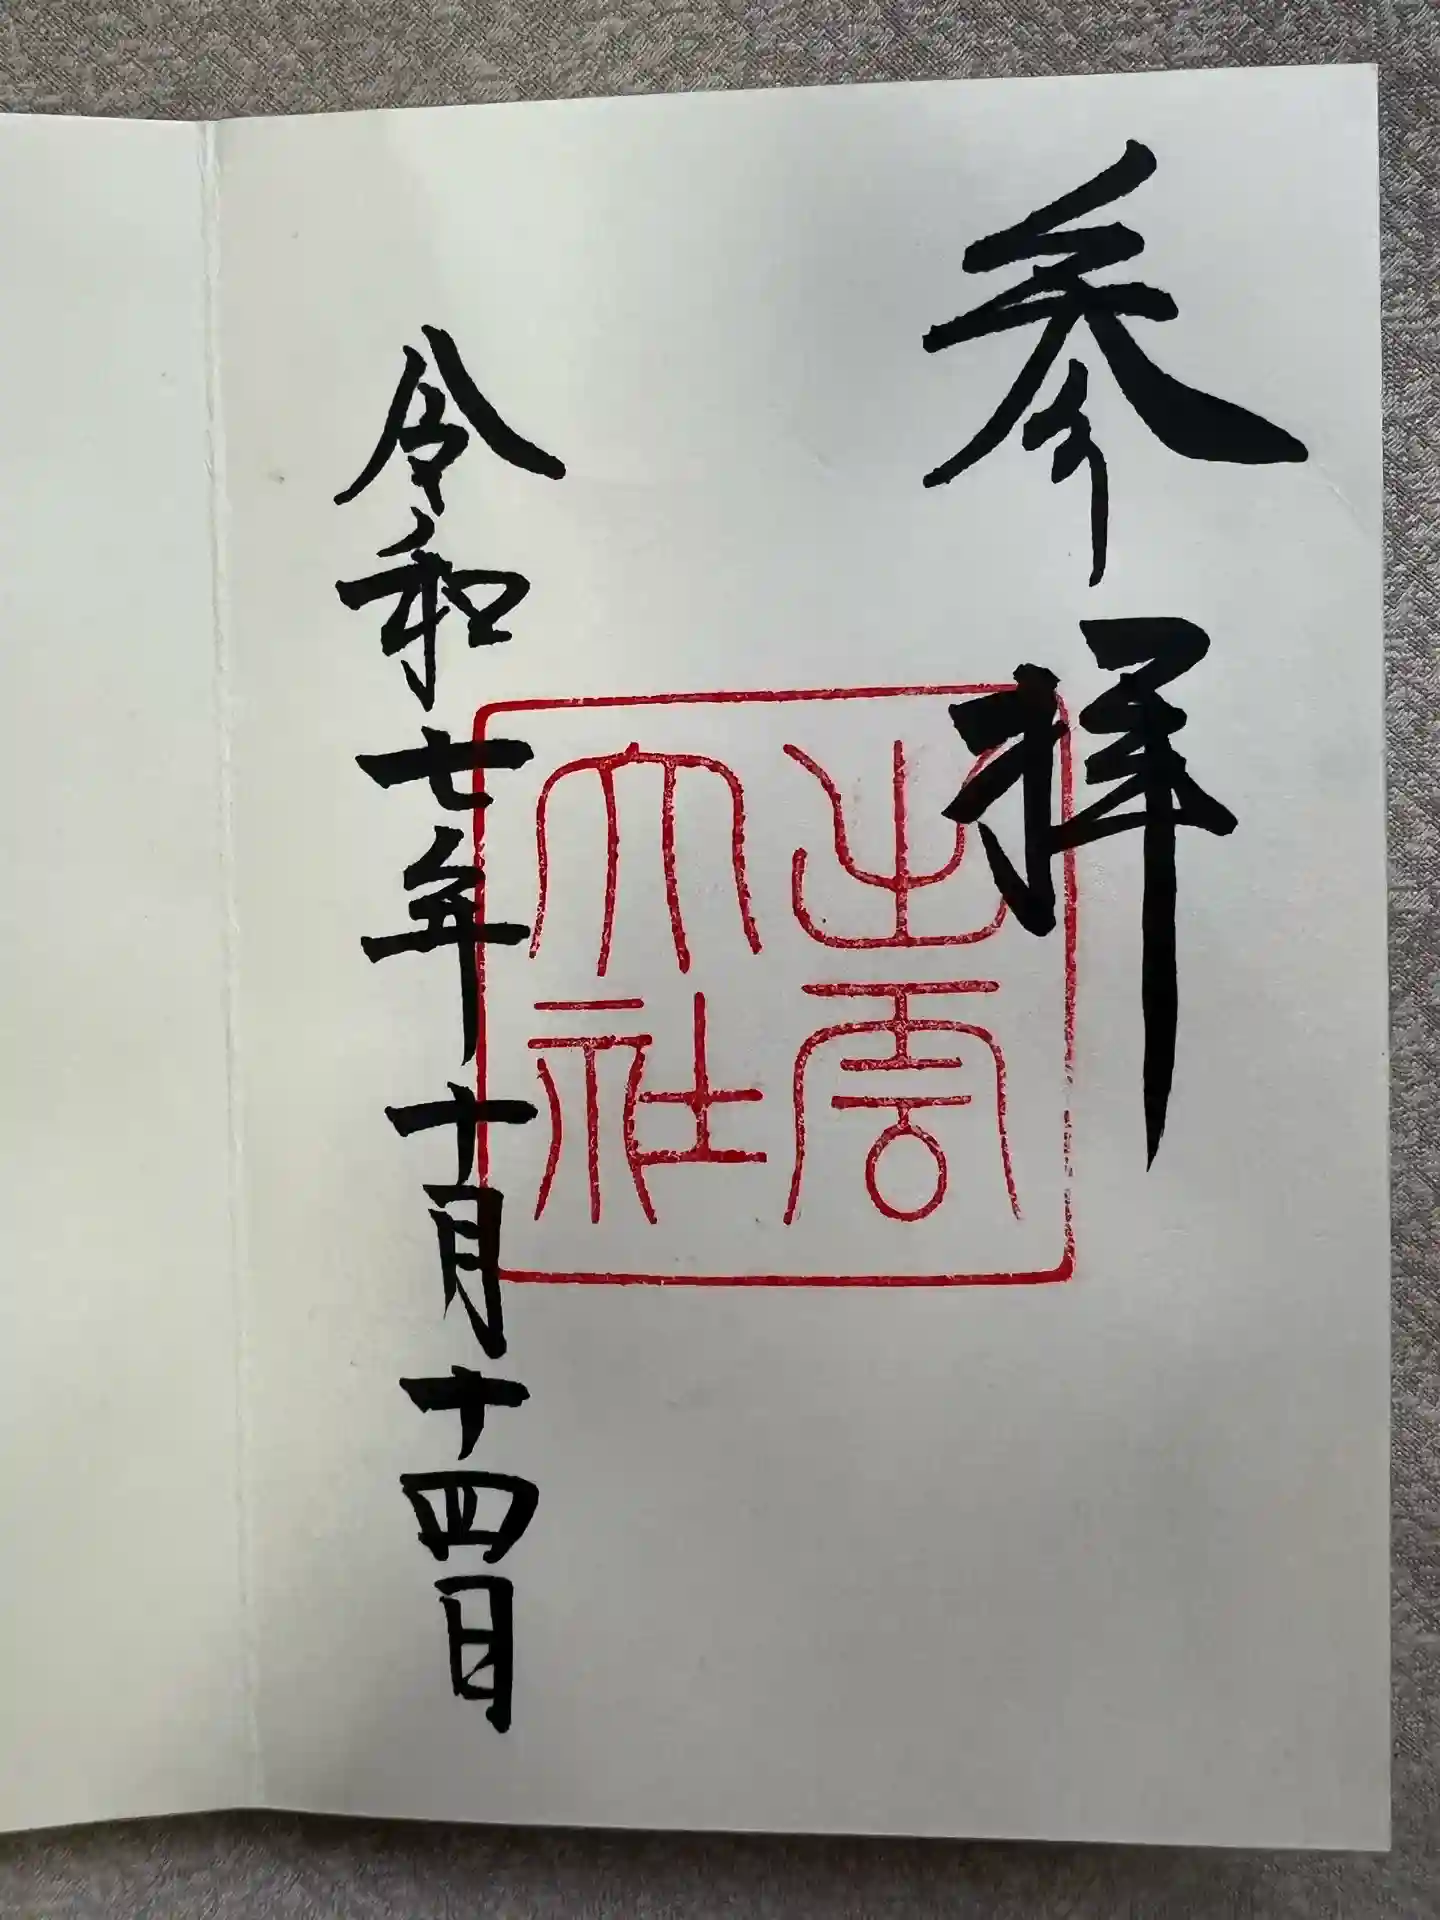 参拝
出雲大社
令和七年十月十四日